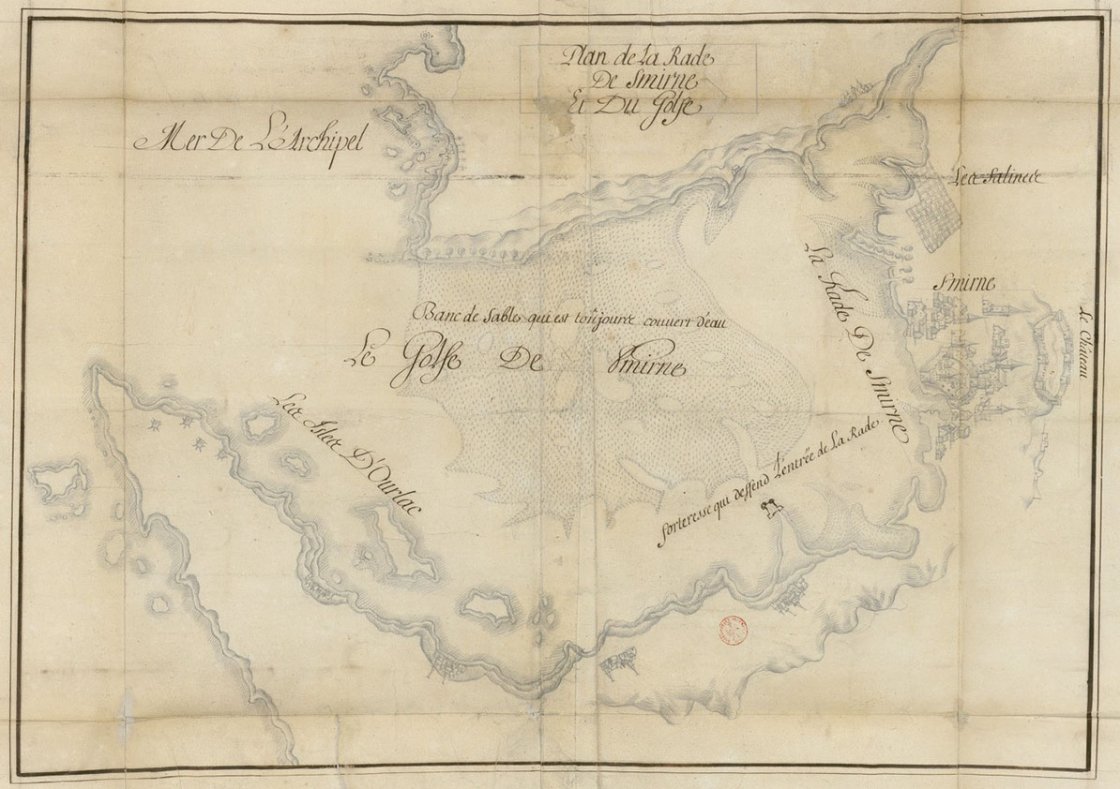 Plan de La Rade
De Smirne
Et Du Golfe
Mer De L'Archipel
Les Salines
Smirne
Le Château
La Rade De Smirne
Banc de Sable qui est toũjours couvert d'eau
Le Golfe De Smirne
Les Isles D'Ourlac
forteresse qui deffend L'entrée de La Rade